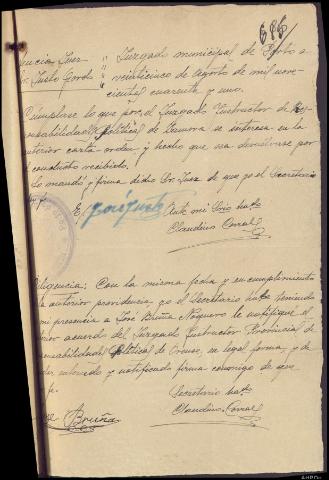 686
Juez Juzgado municipal de a
Justo Gordo veinticinco de agosto de mil nove-
cientos cuarenta y uno.
Cúmplase lo que por el Juzgado Instructor de Res-
ponsabilidades Políticas de Zamora se interesa en la
anterior carta orden y hecho que sea devuélvase por
el conducto recibido.
Lo mandó y firma dicho Sr. Juez de que yo el Secretario
Ante mi Srio habdo
Claudino Corral
Diligencia: Con la misma fecha y en cumplimiento
la anterior providencia, yo el Secretario habdo teniendo
mi presencia a José Bruña Noguero le notifiqué el
acuerdo del Juzgado Instructor Provincial de
Responsabilidades Políticas de en legal forma, y de
enterado y notificado firma conmigo de que
fe.
Secretario habdo
Claudino Corral
José Bruña
AHPZa